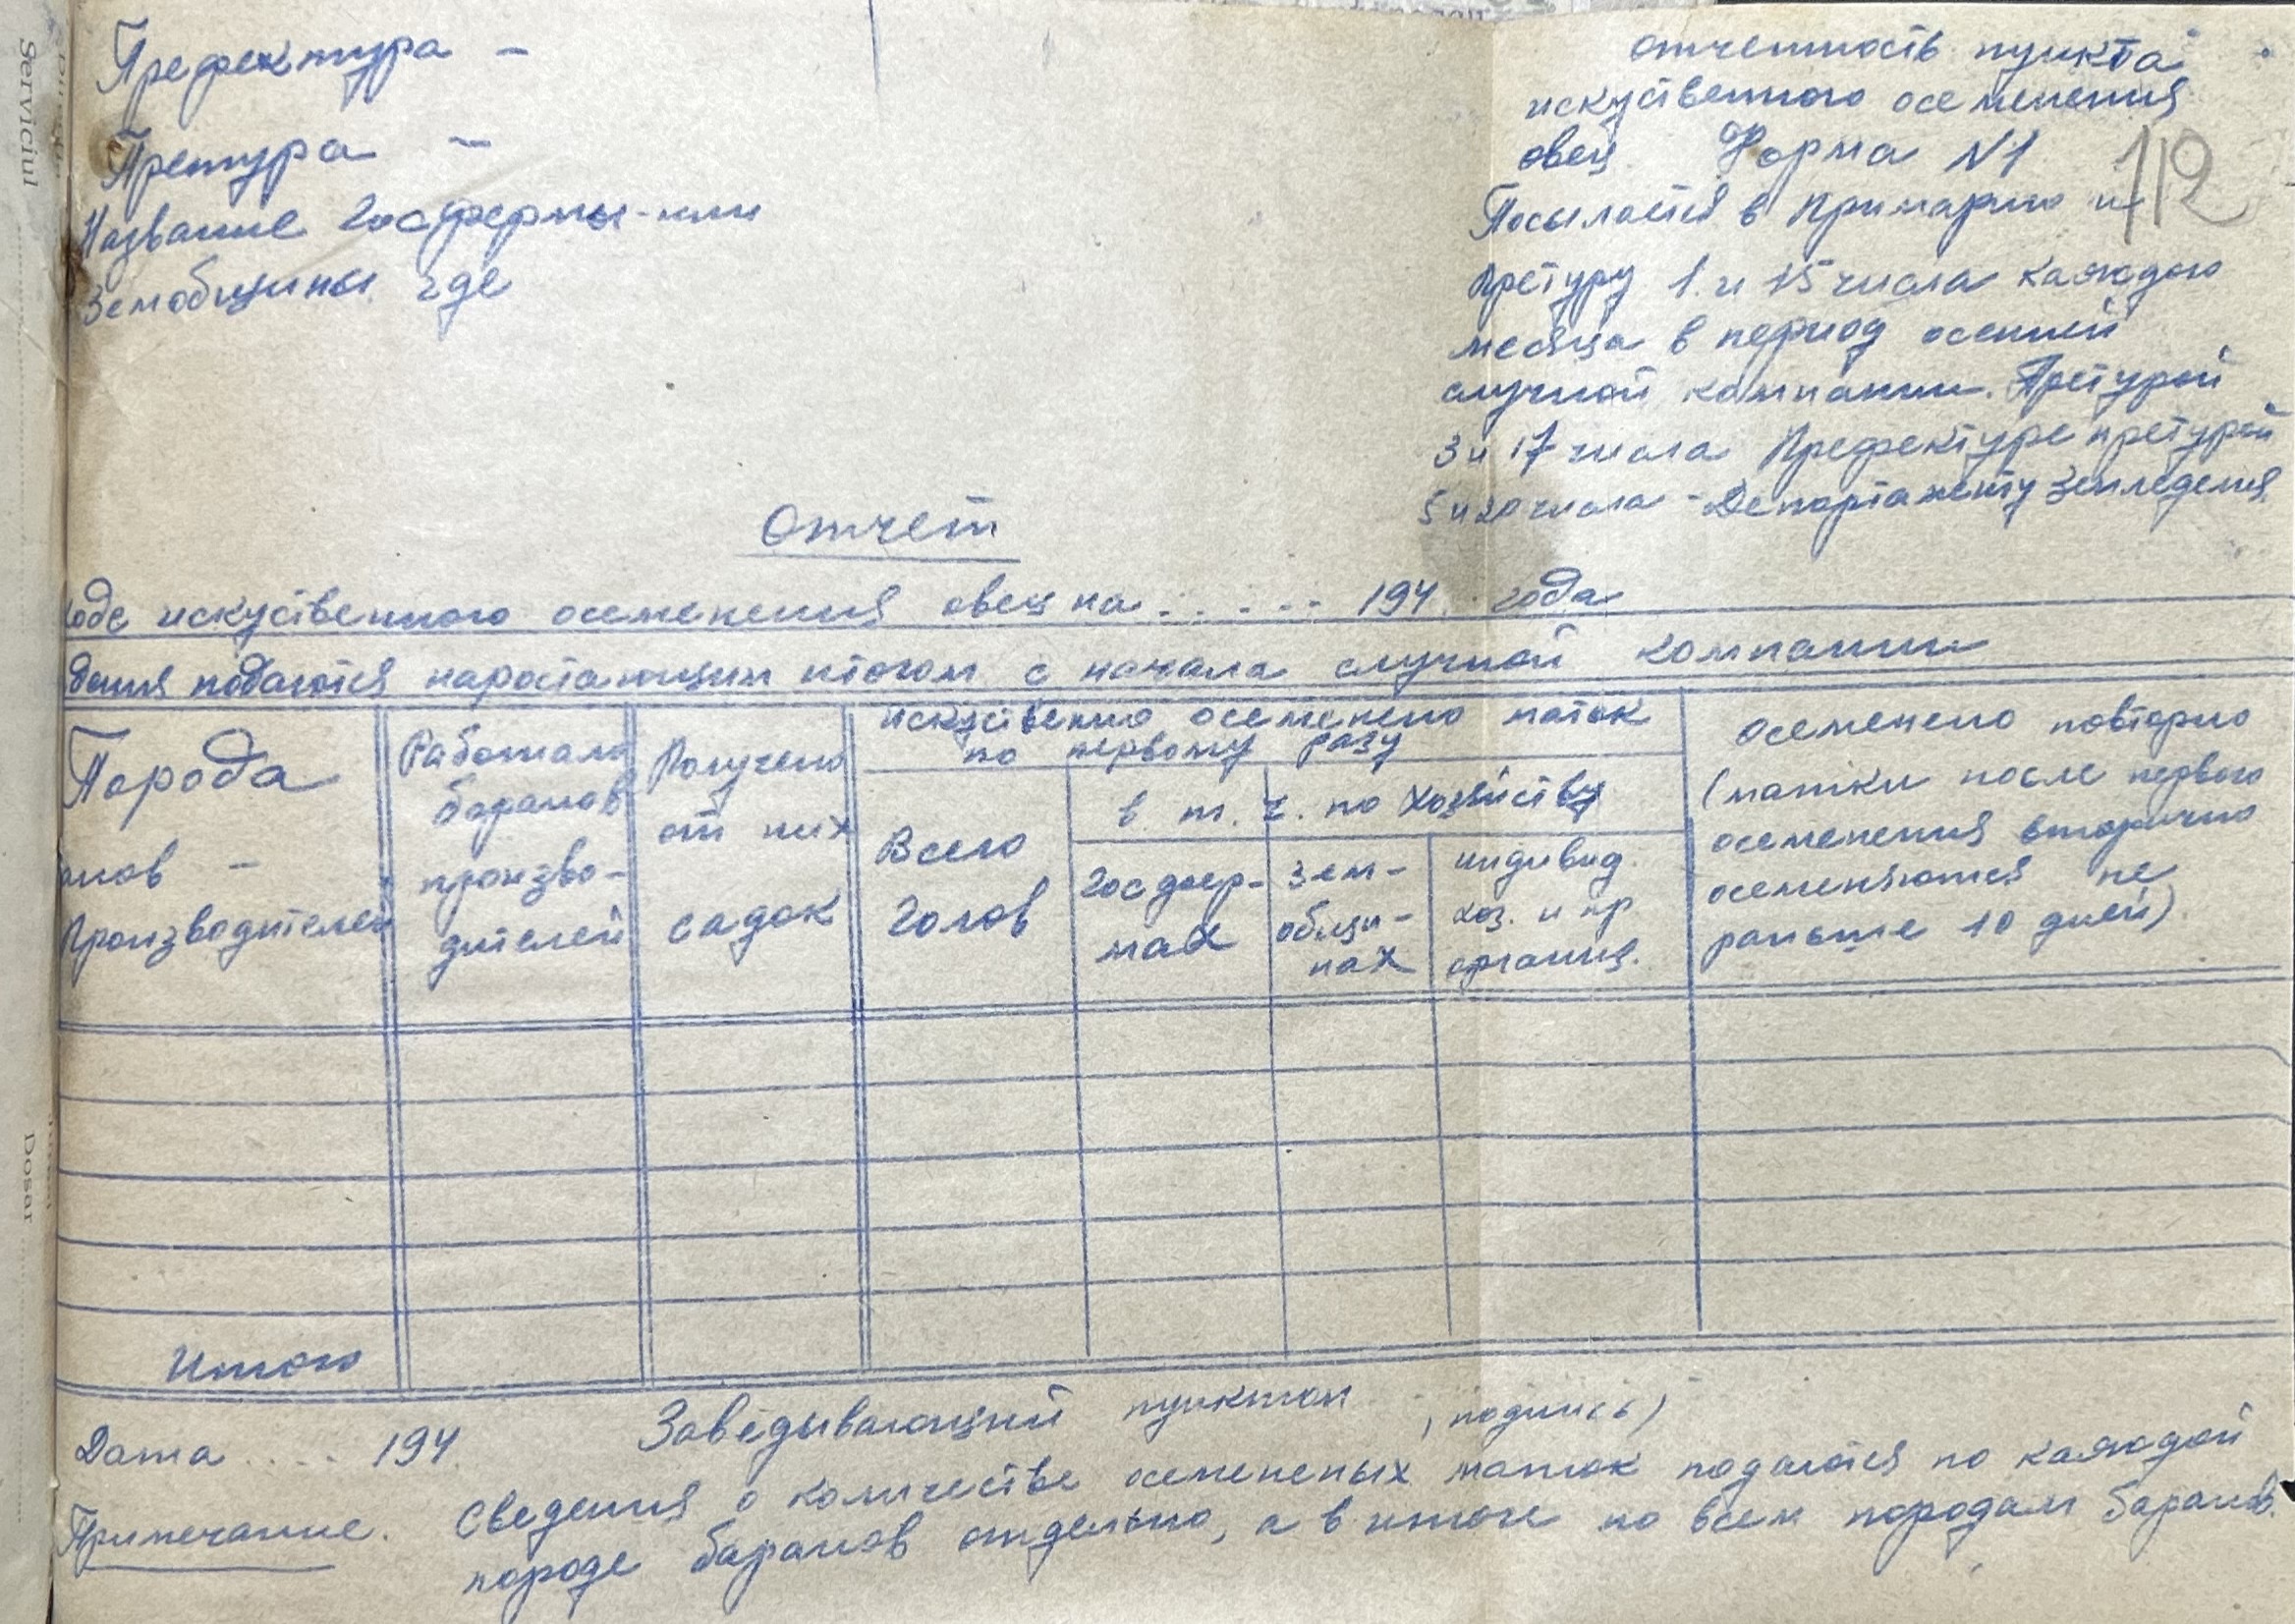 Serviciul
Dosar
Префектура –
Претура –
Название Госфермы-или
Земобщины где
отчетность пункта
искуственного осеменения
овец Форма №1
112
Посылается в Примарию и
Претуру 1 и 15 числа каждого
месяца в период осенней
случной компании. Претурой
3 и 17 числа Префектуре претурой
5 и 20 числа - Департаменту Земледелия
Отчет
ходе искуственного осеменения овец на ...... 194.. года
дения подаются наростающим итогом с начала случной компании
Порода
анов –
Производителей
Работало
баранов
произво-
дителей
Получено
от них
садок
искуственно осеменено маток
по первому разу
Всего
голов
в т. ч. по хозяйству
Госфер-
мах
Зем-
общи-
нах
индивид.
хоз. и пр
организ.
осеменено повторно
(матки после первого
осеменения вторично
осеменяются не
раньше 10 дней).
Итого
Дата .... 194 Заведывающий пунктом (подпись)
Примечание. Сведения о количестве осемененых маток подаются по каждой
породе баранов отдельно, а в итоге по всем породам баранов.